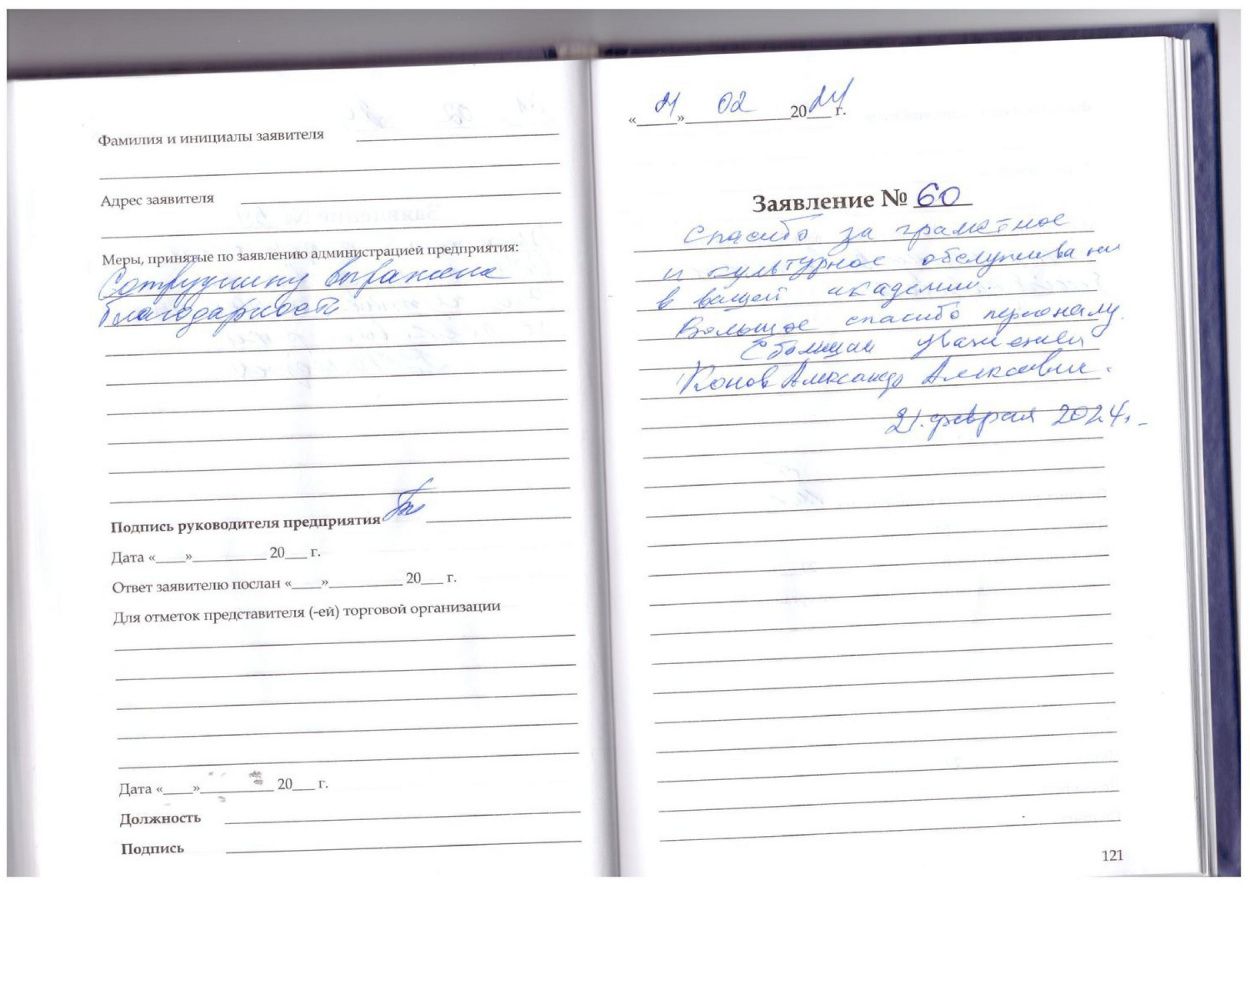 Фамилия и инициалы заявителя
Адрес заявителя
Меры, принятые по заявлению администрацией предприятия:
Сотруднику выражена
благодарность
Подпись руководителя предприятия
Дата «____»__________ 20___ г.
Ответ заявителю послан «____»__________ 20___ г.
Для отметок представителя (-ей) торговой организации
Дата «____»__________ 20___ г.
Должность
Подпись
«21» 02 2024 г.
Заявление № 60
Спасибо за грамотное
и культурное обслуживание
в вашей академии.
Большое спасибо персоналу.
С большим уважением
Конов Александр Алексеевич.
21. февраля 2024г.
121